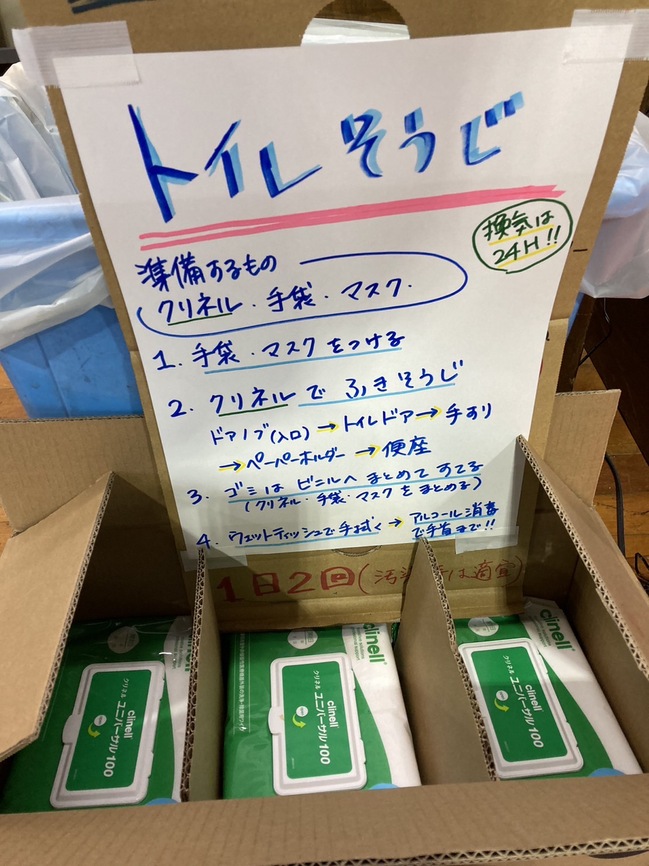 トイレそうじ
換気は
24H!!
準備するもの
クリネル・手袋・マスク・
1. 手袋・マスクをつける
2. クリネルでふきそうじ
ドアノブ(入口)→トイレドア→手すり
→ペーパーホルダー→便座
3. ゴミはビニルへまとめてすてる
(クリネル・手袋・マスクをまとめる)
4. ウェットティッシュで手拭く→アルコール消毒
で手首まで!!
1日2回(汚染 は適宜)
clinell
クリネル
ユニバーサル100
clinell
clinell
クリネル
ユニバーサル100
clinell
clinell
クリネル
ユニバーサル100